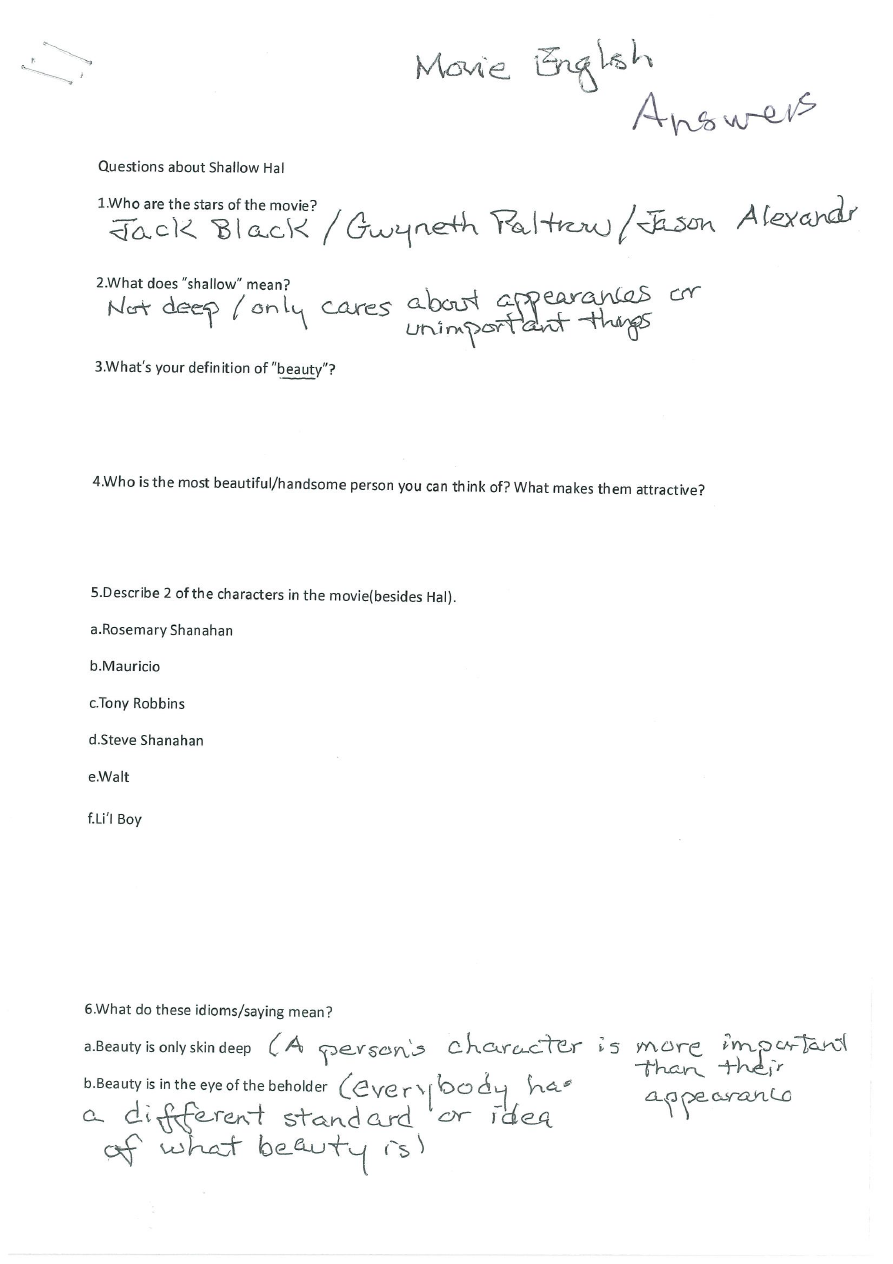 Movie English
Answers
Questions about Shallow Hal
1.Who are the stars of the movie?
Jack Black / Gwyneth Paltrow / Jason Alexandr
2.What does "shallow" mean?
Not deep / only cares about appearances or
unimportant things
3.What's your definition of "beauty"?
4.Who is the most beautiful/handsome person you can think of? What makes them attractive?
5.Describe 2 of the characters in the movie(besides Hal).
a.Rosemary Shanahan
b.Mauricio
c.Tony Robbins
d.Steve Shanahan
e.Walt
f.Li'l Boy
6.What do these idioms/saying mean?
a.Beauty is only skin deep (A person's character is more important
than their
appearance
b.Beauty is in the eye of the beholder (everybody has
a different standard or idea
of what beauty is)